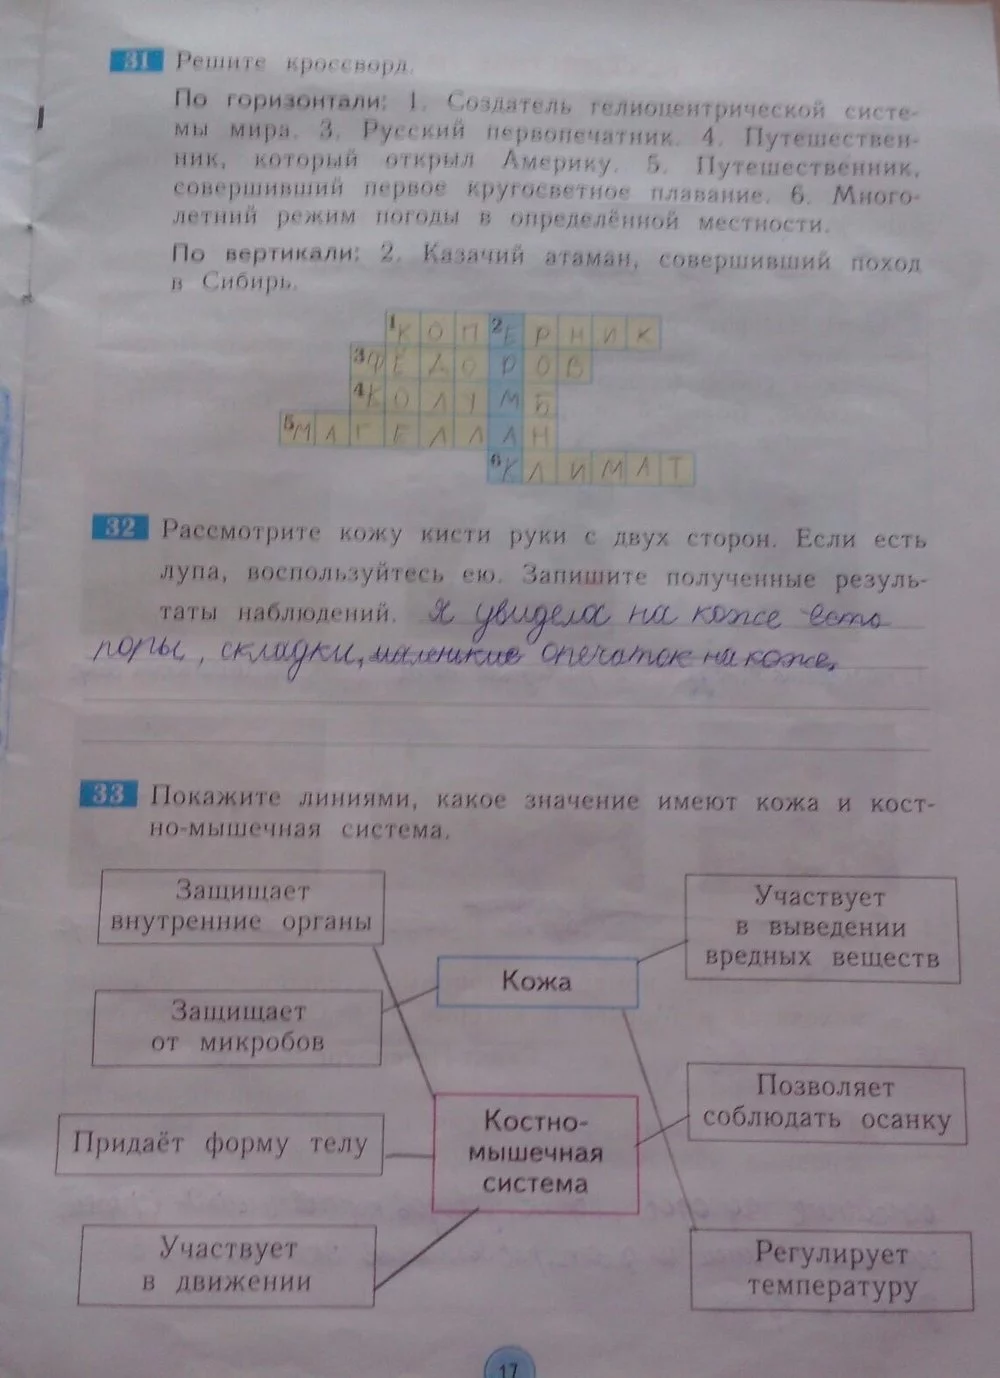 31 Решите кроссворд.
По горизонтали: 1. Создатель гелиоцентрической систе-
мы мира. 3. Русский первопечатник. 4. Путешествен-
ник, который открыл Америку. 5. Путешественник,
совершивший первое кругосветное плавание. 6. Много-
летний режим погоды в определённой местности.
По вертикали: 2. Казачий атаман, совершивший поход
в Сибирь.
1К О П 2Е Р Н И К
3Ф Ё Д О Р О В
4К О Л У М Б
5М А Г Е Л Л А Н
6К Л И М А Т
32 Рассмотрите кожу кисти руки с двух сторон. Если есть
лупа, воспользуйтесь ею. Запишите полученные резуль-
таты наблюдений. Я увидела на коже есть
поры, складки, маленькие опечаток на коже.
33 Покажите линиями, какое значение имеют кожа и кост-
но-мышечная система.
Защищает
внутренние органы
Участвует
в выведении
вредных веществ
Кожа
Защищает
от микробов
Позволяет
соблюдать осанку
Костно-
мышечная
система
Придаёт форму телу
Участвует
в движении
Регулирует
температуру
17